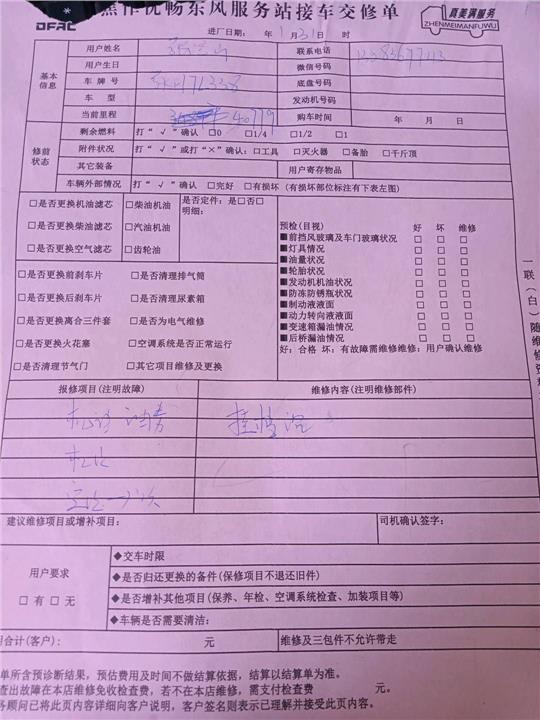 优畅东风服务站接车交修单
DFAC
真美满服务
ZHENMEIMANFUWU
进厂日期: 年 1月31日 时
基本信息
用户姓名
联系电话
用户生日
微信号码
车牌号
底盘号码
车型
发动机号码
当前里程 40779
购车时间 年 月 日
修前状态
剩余燃料 打“√”确认 □0 □1/4 □1/2 □1
附件状况 打“√”或打“×”确认: □工具 □灭火器 □备胎 □千斤顶
其它装备
用户寄存物品
车辆外部情况 打“√”确认 □完好 □有损坏 (有损坏部位标注有下表左图)
□是否更换机油滤芯 □柴油机油 是否定件: 是□否□
明细:
□是否更换柴油滤芯 □汽油机油
□是否更换空气滤芯 □齿轮油
预检(目视) 好 坏 维修
■前挡风玻璃及车门玻璃状况 □ □ □
■灯具情况 □ □ □
■油量状况 □ □ □
■轮胎状况 □ □ □
■发动机机油状况 □ □ □
■防冻防锈瓶状况 □ □ □
■制动液液面 □ □ □
■动力转向液液面 □ □ □
■变速箱漏油情况 □ □ □
■后桥漏油情况 □ □ □
好: 合格 坏: 有故障需维修维修: 用户确认维修
□是否更换前刹车片 □是否清理排气筒
□是否更换后刹车片 □是否清理尿素箱
□是否更换离合三件套 □是否为电气维修
□是否更换火花塞 □空调系统是否正常运行
□是否清理节气门 □其它项目维修及更换
一联(白)随维修资
报修项目(注明故障)
维修内容(注明维修部件)
建议维修项目或增补项目:
司机确认签字:
用户要求
□有 □无
◆交车时限
◆是否归还更换的备件(保修项目不退还旧件)
◆是否增补其他项目(保养、年检、空调系统检查、加装项目等)
◆车辆是否需要清洁:
用合计(客户): 元
维修及三包件不允许带走
单所含预诊断结果, 预估费用及时间不做结算依据, 结算以结算单为准。
查出故障在本店维修免收检查费, 若不在本店维修, 需支付检查费 元。
务顾问已将此页内容详细向客户说明, 客户签名则表示已理解并接受此页内容。